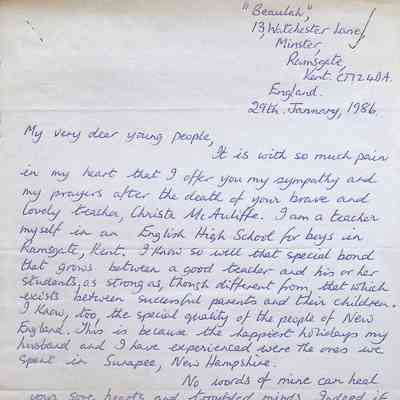 "Beaulah",
13, Watchester Lane,
Minster,
Ramsgate,
Kent. CT12 4DA.
England.
29th. January, 1986.
My very dear young people,
It is with so much pain
in my heart that I offer you my sympathy and
my prayers after the death of your brave and
lovely teacher, Christa McAuliffe. I am a teacher
myself in an English High School for boys in
Ramsgate, Kent. I know so well that special bond
that grows between a good teacher and his or her
students, as strong as, though different from, that which
exists between successful parents and their children.
I know, too, the special quality of the people of New
England. This is because the happiest holidays my
husband and I have experienced were the ones we
spent in Sunapee, New Hampshire.
No words of mine can heal
your sore hearts and troubled minds. Indeed if